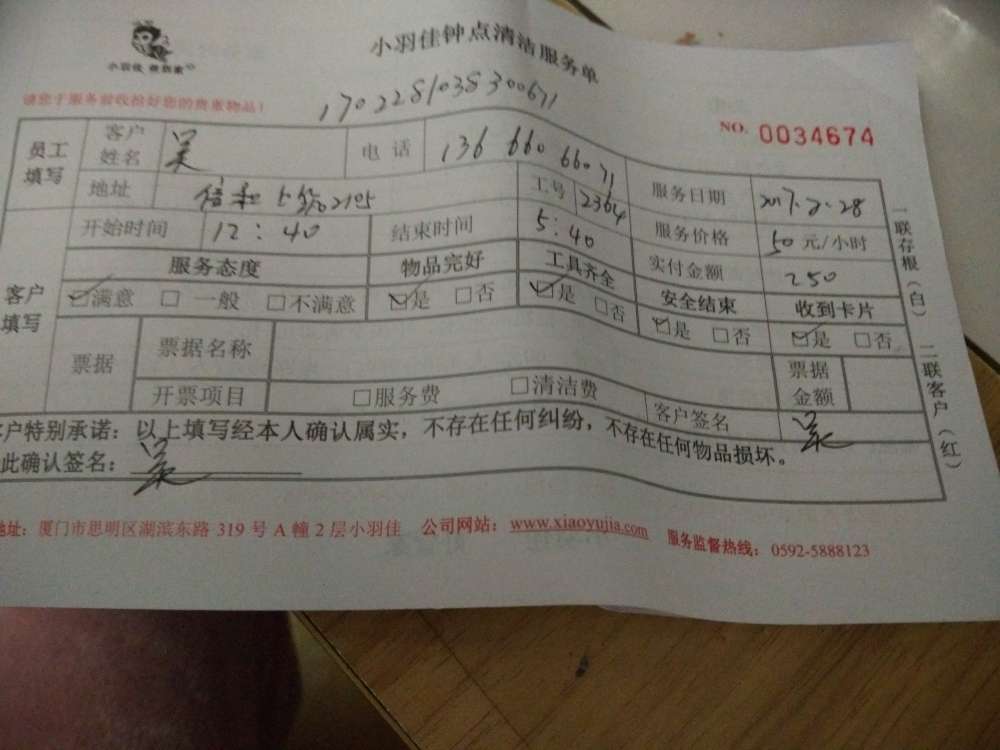 小羽佳 小羽佳钟点清洁服务单
请您于服务前收拾好您的贵重物品! 1702281038300671
NO. 0034674
员工填写 客户姓名 吴 电话 136 660 66071
地址 5 2105 工号 2364 服务日期 2017.2.28
开始时间 12:40 结束时间 5:40 服务价格 50 元/小时
客户填写 服务态度 物品完好 工具齐全 实付金额 250
☑满意 □一般 □不满意 ☑是 □否 ☑是 □否 安全结束 收到卡片
☑是 □否 ☑是 □否
票据 票据名称 票据金额
开票项目 □服务费 □清洁费 客户签名 吴
客户特别承诺:以上填写经本人确认属实,不存在任何纠纷,不存在任何物品损坏。
此确认签名: 吴
地址:厦门市思明区湖滨东路 319 号 A 幢 2 层小羽佳 公司网站:www.xiaoyujia.com 服务监督热线:0592-5888123
一联存根(白) 二联客户(红)